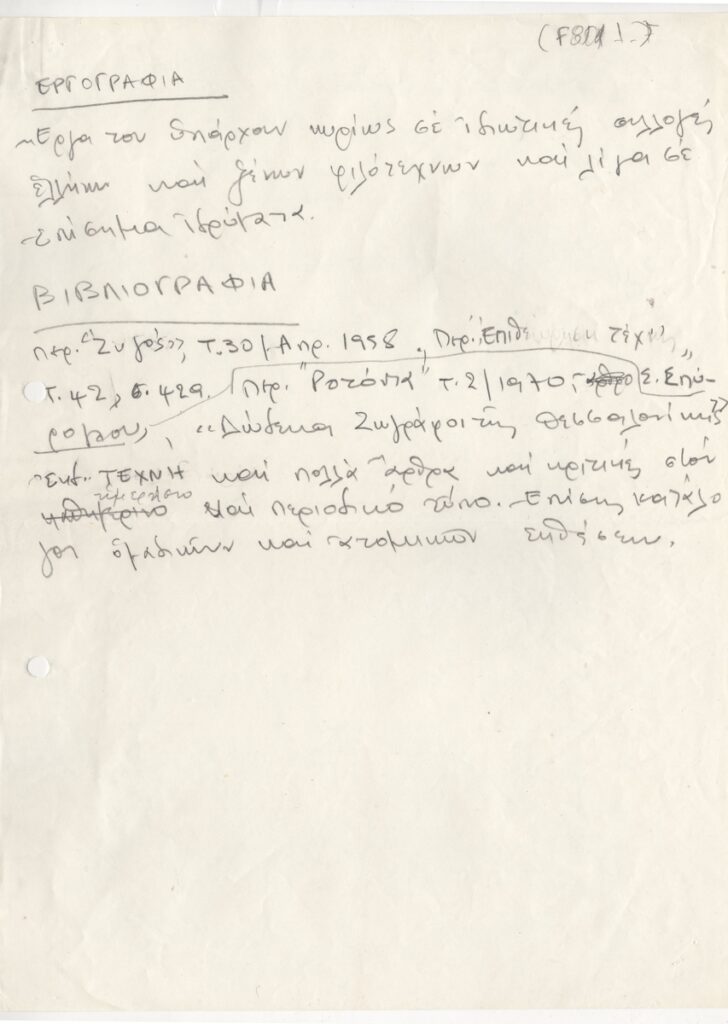 ΕΡΓΟΓΡΑΦΙΑ
Ἔργα του ὑπάρχουν κυρίως σέ ἰδιωτικές συλλογές
ἑλλήνων καί ξένων φιλότεχνων καί λίγα σέ
ἐπίσημα ἱδρύματα.
ΒΙΒΛΙΟΓΡΑΦΙΑ
περ. "Ζυγός", Τ.30/Απρ. 1958, Περ. "Επιθεώρηση τέχνης"
Τ.42, σ.429. Περ. "Ροτόντα" τ.2/1970, Σ. Σπυ-
ρόμους, «Δώδεκα Ζωγράφοι τῆς Θεσσαλονίκης»
Ἐκδ. ΤΕΧΝΗ καί πολλά ἄρθρα καί κριτικές στόν
ἡμερήσιο καί περιοδικό τύπο. Ἐπίσης κατάλο
γοι ὁμαδικῶν καί ἀτομικῶν ἐκθέσεων.